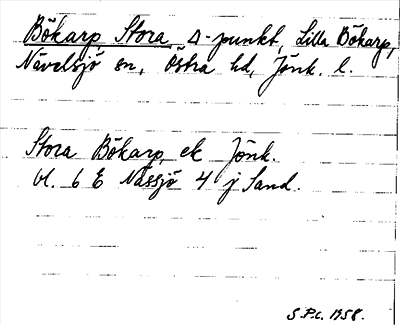 Bökarp, Stora, Δ-punkt, Lilla Bökarp,
Nävelsjö sn, Östra hd, Jönk. l.
Stora Bökarp, ek Jönk.
bl. 6 E Nässjö 4 j Sand.
S.P.C. 1958.